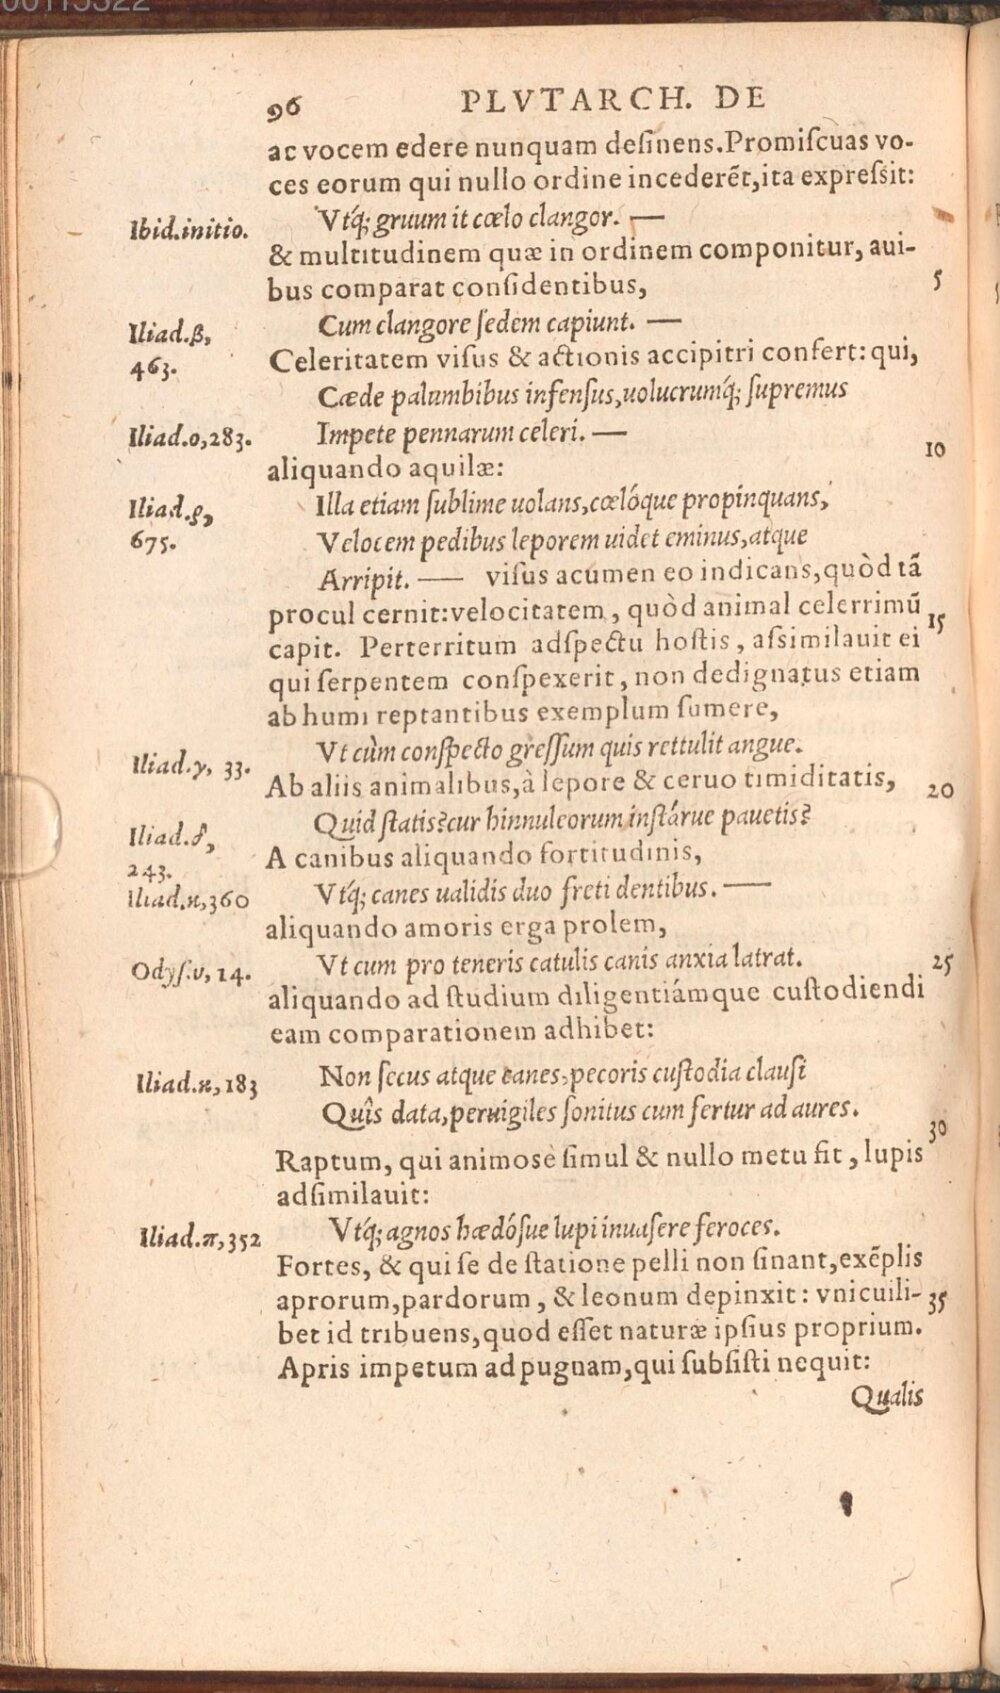 00115322
96 PLVTARCH. DE
ac vocem edere nunquam deſinens.Promiſcuas vo-
ces eorum qui nullo ordine incederẽt,ita expreſsit:
Vtq́; gruum it cœlo clangor. —
Ibid.initio.
& multitudinem quæ in ordinem componitur, aui-
bus comparat conſidentibus, 5
Cum clangore ſedem capiunt. —
Iliad.β,
463.
Celeritatem viſus & actionis accipitri confert: qui,
Cæde palumbibus infenſus,uolucrumq́; ſupremus
Impete pennarum celeri. —
Iliad.o,283.
aliquando aquilæ: 10
Illa etiam ſublime uolans,cœlóque propinquans,
Iliad.ρ,
675.
Velocem pedibus leporem uidet eminus,atque
Arripit. — viſus acumen eo indicans,quòd tã
procul cernit:velocitatem, quòd animal celerrimũ 15
capit. Perterritum adſpectu hoſtis, aſsimilauit ei
qui ſerpentem conſpexerit, non dedignatus etiam
ab humi reptantibus exemplum ſumere,
Vt cùm conſpecto greſſum quis rettulit angue.
Iliad.γ, 33.
Ab aliis animalibus,à lepore & ceruo timiditatis, 20
Quid ſtatis?cur hinnuleorum inſtárue pauetis?
Iliad.δ,
243.
A canibus aliquando fortitudinis,
Vtq́; canes ualidis duo freti dentibus. —
Iliad.κ,360
aliquando amoris erga prolem,
Vt cum pro teneris catulis canis anxia latrat. 25
Odyſ.υ, 14.
aliquando ad ſtudium diligentiámque cuſtodiendi
eam comparationem adhibet:
Non ſecus atque canes,pecoris cuſtodia clauſi
Iliad.κ,183
Quîs data,peruigiles ſonitus cum fertur ad aures. 30
Raptum, qui animosè ſimul & nullo metu fit, lupis
adſimilauit:
Vtq́; agnos hædóſue lupi inuaſere feroces.
Iliad.π,352
Fortes, & qui ſe de ſtatione pelli non ſinant,exẽplis
aprorum,pardorum, & leonum depinxit: vnicuili- 35
bet id tribuens,quod eſſet naturæ ipſius proprium.
Apris impetum ad pugnam,qui ſubſiſti nequit:
Qualis